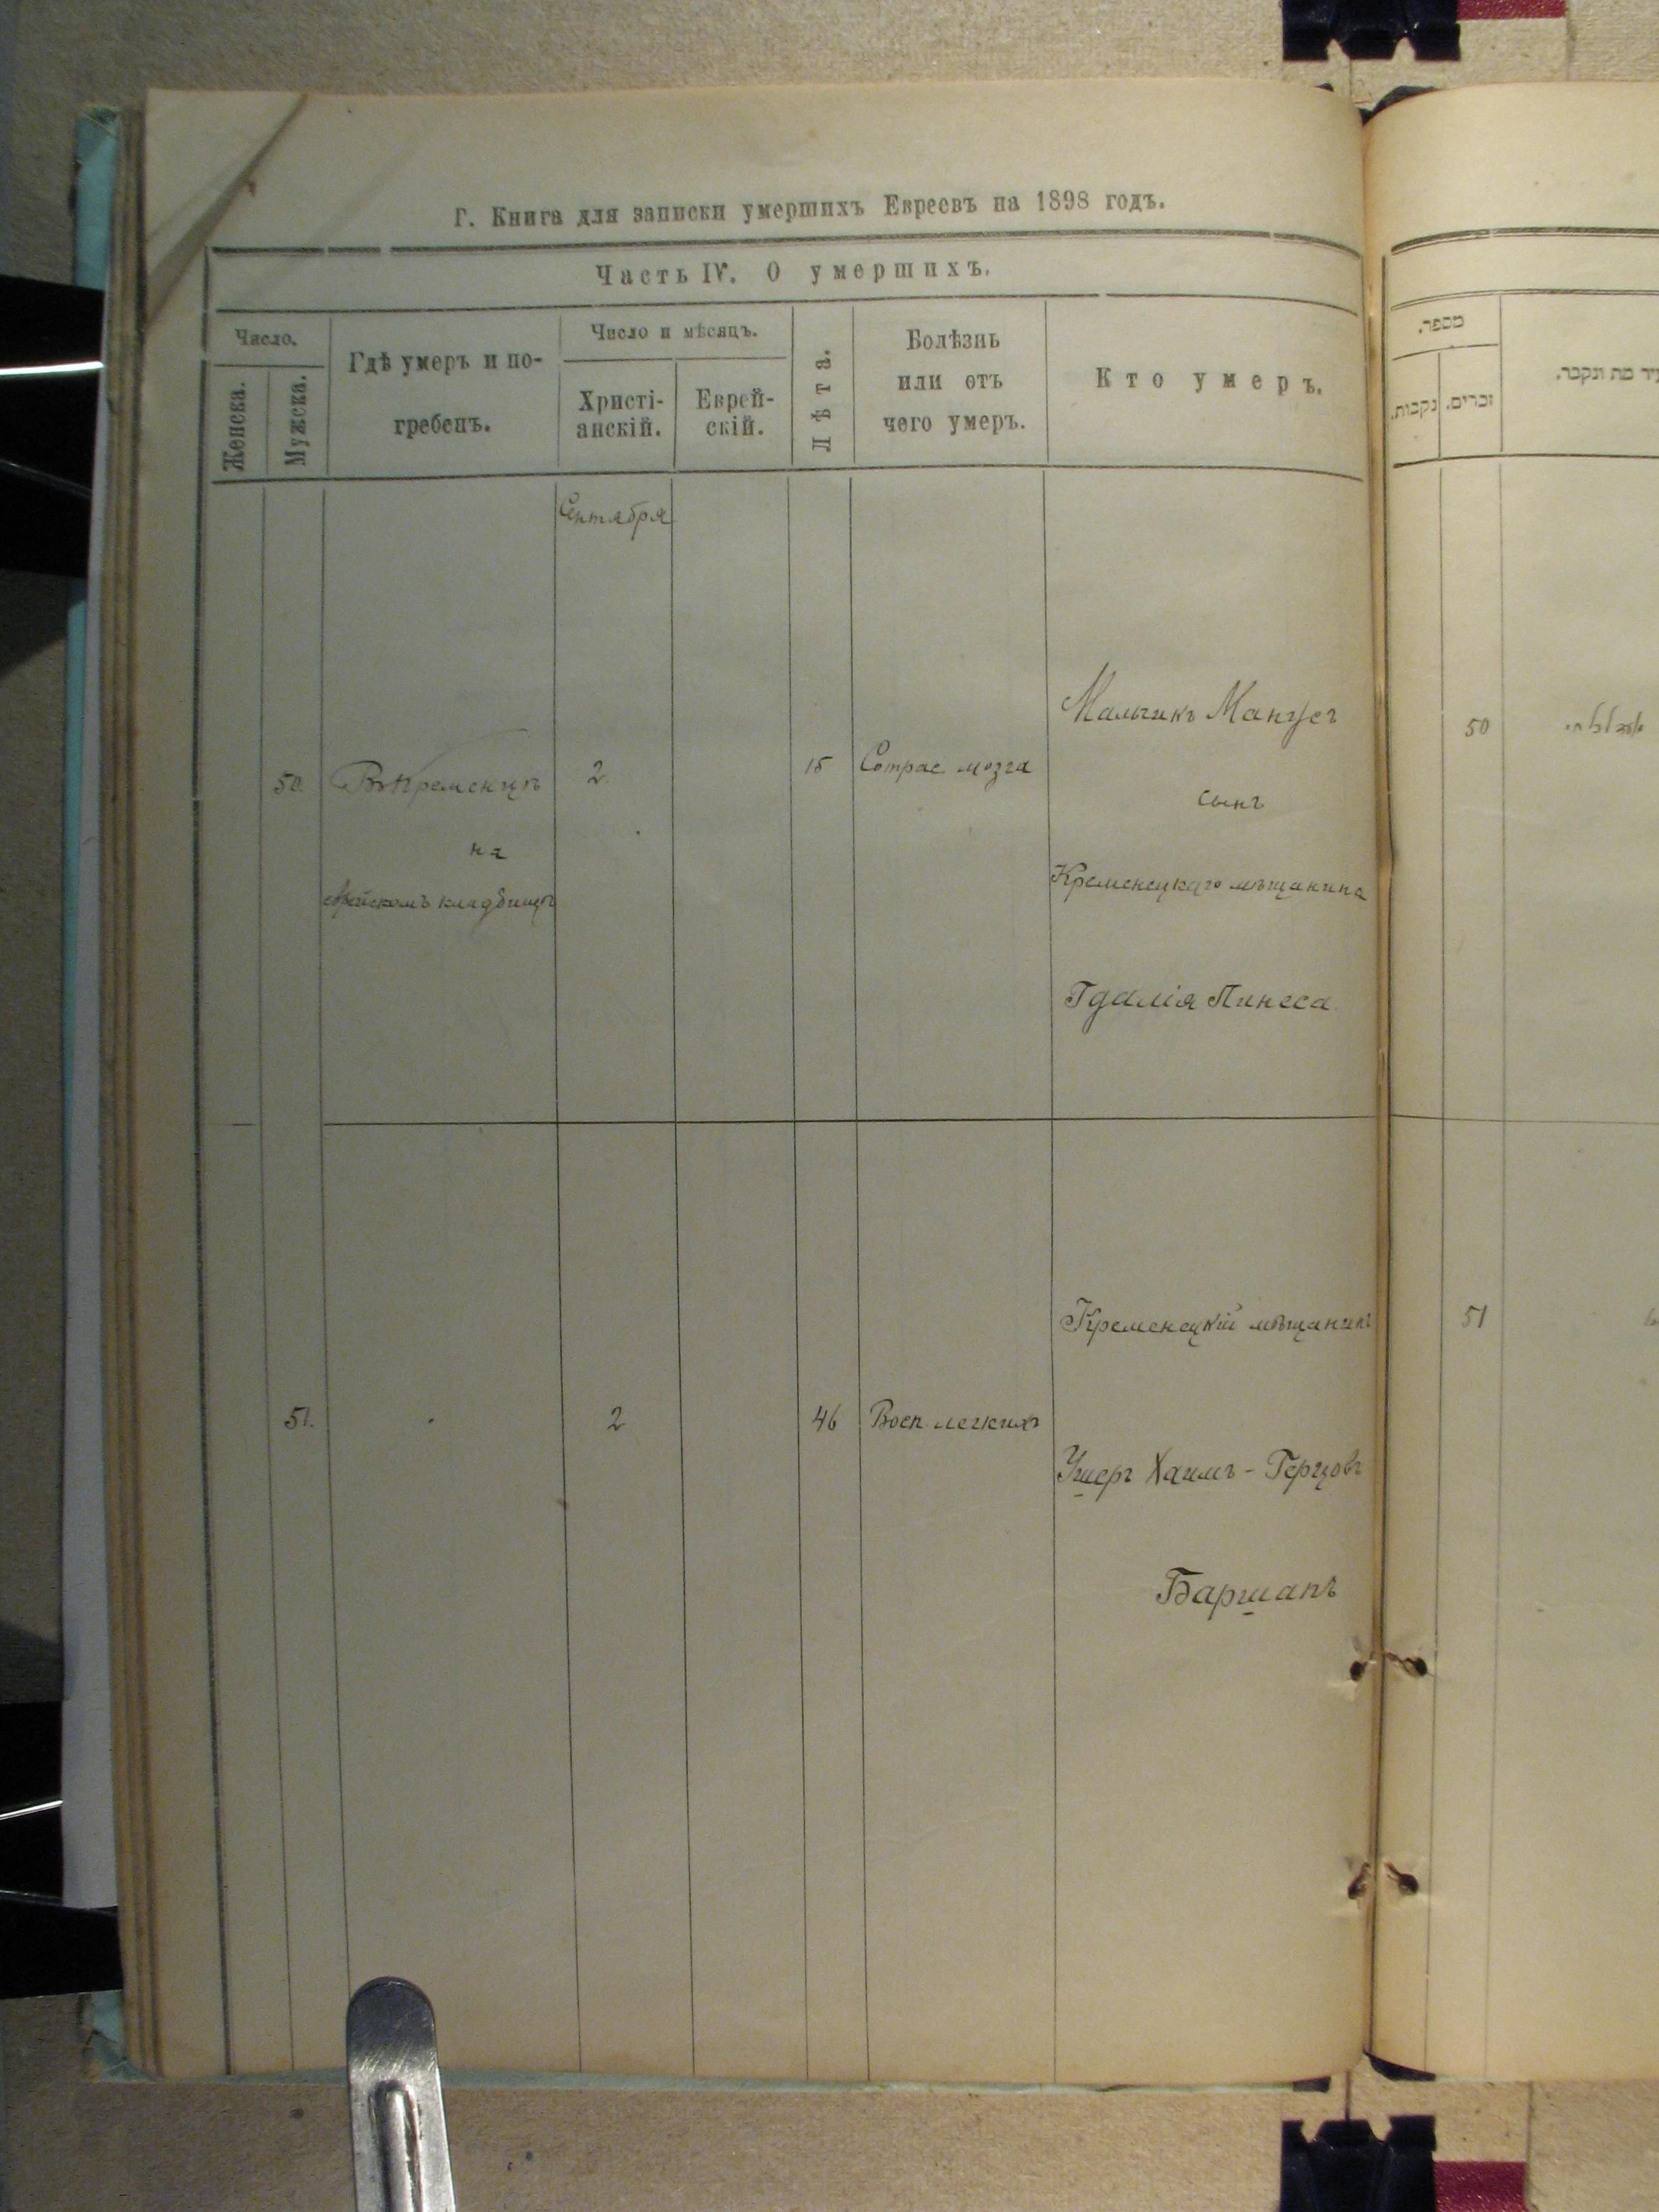 Г. Книга для записки умершихъ Евреевъ на 1898 годъ.
Часть IV. О умершихъ.
Число.
Женска.
Мужска.
Гдѣ умеръ и по-
гребенъ.
Число и мѣсяцъ.
Христі-
анскій.
Еврей-
скій.
Лѣта.
Болѣзнь
или отъ
чего умеръ.
Кто умеръ.
Сентября
50.
Въ Кременцѣ
на
еврейскомъ кладбищѣ
2
15
Сотряс мозга
Мальчикъ
сынъ
Кременецкаго мѣщанина
Гдалія Пинеса
51.
2
46
Восп. легкихъ
Кременецкій мѣщанинъ
Ушеръ Хаимъ-Герцовъ
Баршапъ
מספר.
נקבות.
זכרים.
מת ונקבר.
50
51